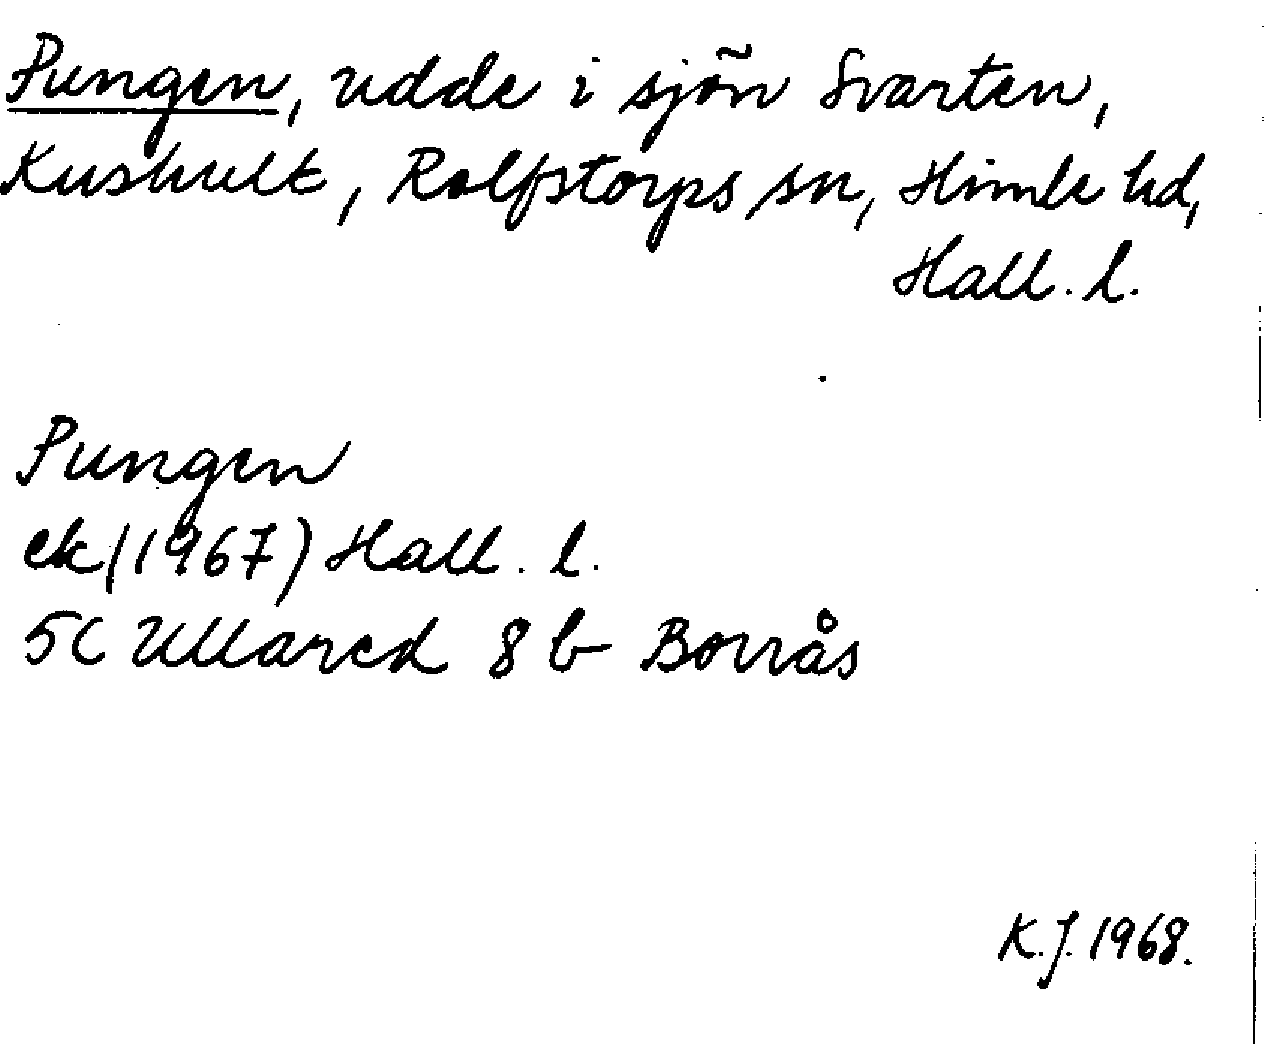 Pungen, udde i sjön Svarten,
Kushult, Rolfstorps sn, Himle hd,
Hall. l.
Pungen
ek (1967) Hall. l.
5C Ullared 8 b Borrås
K.J. 1968.